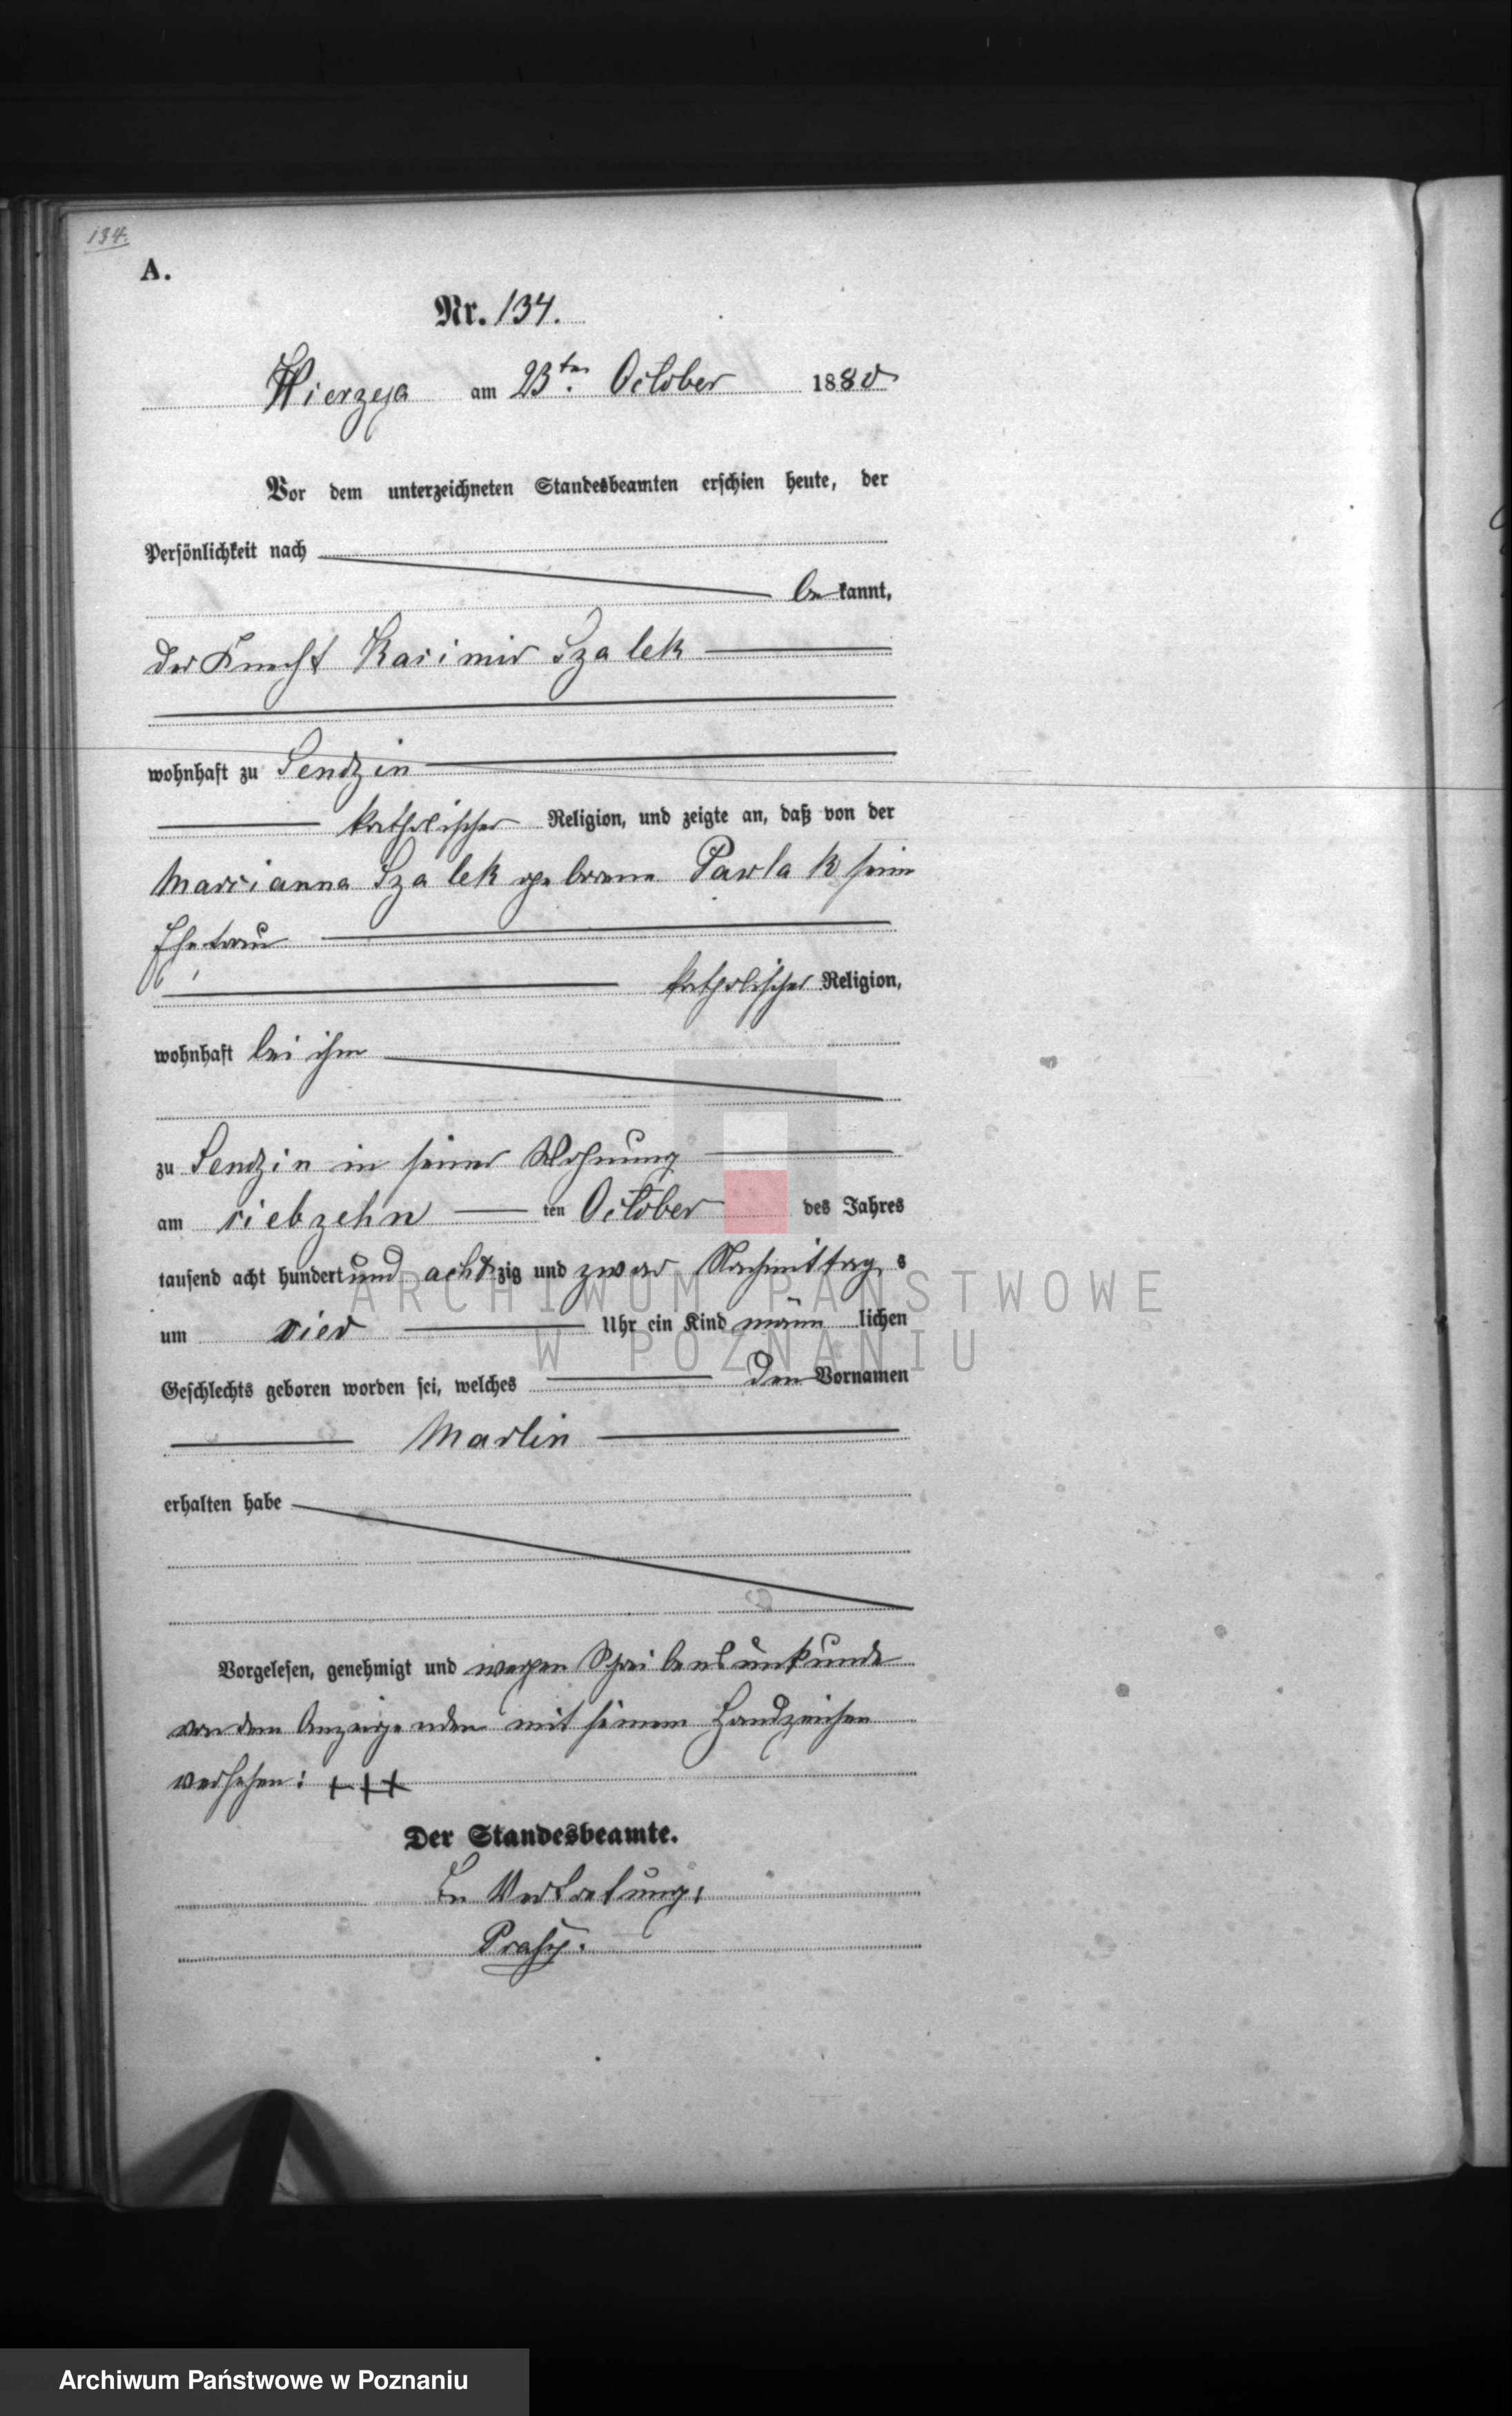 134.
A.
Nr. 134.
Wierzeja am 23ten October 1880
Vor dem unterzeichneten Standesbeamten erschien heute, der
Persönlichkeit nach
bekannt,
der Knecht Kasimir Szalek
wohnhaft zu Sendzin
katholischer Religion, und zeigte an, daß von der
Marianna Szalek geborene Pawlak seine
Ehefrau
katholischer Religion,
wohnhaft bei ihm
zu Sendzin in seiner Wohnung
am siebzehn ten October des Jahres
tausend acht hundert und achtzig und zwar Nachmittags
um vier Uhr ein Kind männlichen
Geschlechts geboren worden sei, welches den Vornamen
Martin
erhalten habe
Vorgelesen, genehmigt und wegen Schreibensunkunde
von dem Anzeigenden mit seinem Handzeichen
versehen: +++
Der Standesbeamte.
In Vertretung:
ARCHIWUM PAŃSTWOWE
W POZNANIU
Archiwum Państwowe w Poznaniu